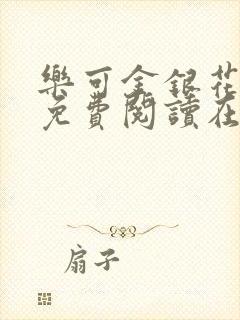 樂可金銀花
免費閱讀在
扇子